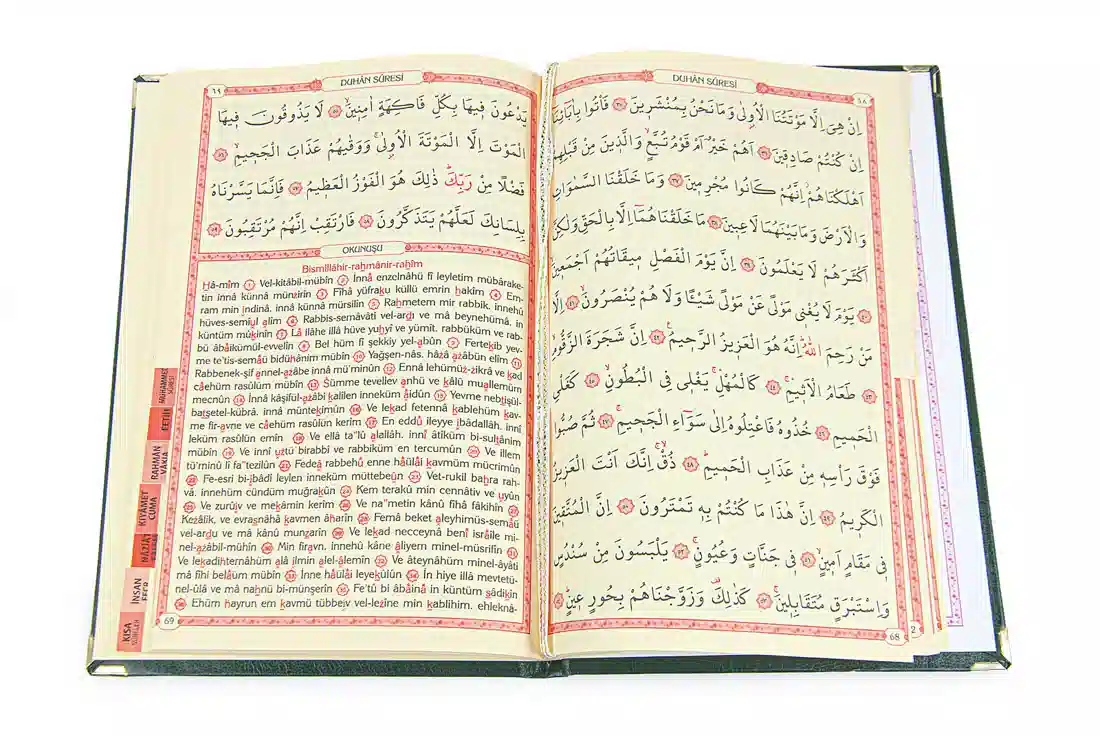 DUHÂN SÛRESİ
٦٨
اِنْ هِىَ اِلَّا مَوْتَتُنَا الْاُولٰى وَمَا نَحْنُ بِمُنْشَرِينَ ﴿٣٥﴾ فَأْتُوا بِاٰبَائِنَا
اِنْ كُنْتُمْ صَادِقِينَ ﴿٣٦﴾ اَهُمْ خَيْرٌ اَمْ قَوْمُ تُبَّعٍ وَالَّذِينَ مِنْ قَبْلِهِمْ
اَهْلَكْنَاهُمْ اِنَّهُمْ كَانُوا مُجْرِمِينَ ﴿٣٧﴾ وَمَا خَلَقْنَا السَّمٰوَاتِ
وَالْاَرْضَ وَمَا بَيْنَهُمَا لَاعِبِينَ ﴿٣٨﴾ مَا خَلَقْنَاهُمَا اِلَّا بِالْحَقِّ وَلٰكِنَّ
اَكْثَرَهُمْ لَا يَعْلَمُونَ ﴿٣٩﴾ اِنَّ يَوْمَ الْفَصْلِ مِيقَاتُهُمْ اَجْمَعِينَ
﴿٤٠﴾ يَوْمَ لَا يُغْنِى مَوْلًى عَنْ مَوْلًى شَيْئًا وَلَا هُمْ يُنْصَرُونَ ﴿٤١﴾ اِلَّا
مَنْ رَحِمَ اللّٰهُ اِنَّهُ هُوَ الْعَزِيزُ الرَّحِيمُ ﴿٤٢﴾ اِنَّ شَجَرَةَ الزَّقُّومِ
﴿٤٣﴾ طَعَامُ الْاَثِيمِ ﴿٤٤﴾ كَالْمُهْلِ يَغْلِى فِى الْبُطُونِ ﴿٤٥﴾ كَغَلْىِ
الْحَمِيمِ ﴿٤٦﴾ خُذُوهُ فَاعْتِلُوهُ اِلٰى سَوَاءِ الْجَحِيمِ ﴿٤٧﴾ ثُمَّ صُبُّوا
فَوْقَ رَأْسِهِ مِنْ عَذَابِ الْحَمِيمِ ﴿٤٨﴾ ذُقْ اِنَّكَ اَنْتَ الْعَزِيزُ
الْكَرِيمُ ﴿٤٩﴾ اِنَّ هٰذَا مَا كُنْتُمْ بِهِ تَمْتَرُونَ ﴿٥٠﴾ اِنَّ الْمُتَّقِينَ
فِى مَقَامٍ اَمِينٍ ﴿٥١﴾ فِى جَنَّاتٍ وَعُيُونٍ ﴿٥٢﴾ يَلْبَسُونَ مِنْ سُنْدُسٍ
وَاِسْتَبْرَقٍ مُتَقَابِلِينَ ﴿٥٣﴾ كَذٰلِكَ وَزَوَّجْنَاهُمْ بِحُورٍ عِينٍ ﴿٥٤﴾
68
DUHÂN SÛRESİ
٦٩
يَدْعُونَ فِيهَا بِكُلِّ فَاكِهَةٍ اٰمِنِينَ ﴿٥٥﴾ لَا يَذُوقُونَ فِيهَا
الْمَوْتَ اِلَّا الْمَوْتَةَ الْاُولٰى وَوَقٰيهُمْ عَذَابَ الْجَحِيمِ ﴿٥٦﴾
فَضْلًا مِنْ رَبِّكَ ذٰلِكَ هُوَ الْفَوْزُ الْعَظِيمُ ﴿٥٧﴾ فَاِنَّمَا يَسَّرْنَاهُ
بِلِسَانِكَ لَعَلَّهُمْ يَتَذَكَّرُونَ ﴿٥٨﴾ فَارْتَقِبْ اِنَّهُمْ مُرْتَقِبُونَ ﴿٥٩﴾
OKUNUŞU
Bismillâhir-rahmânir-rahîm
Hâ-mîm (1) Vel-kitâbil-mübîn (2) İnnâ enzelnâhü fî leyletim mübârake-
tin innâ künnâ münzirîn (3) Fîhâ yüfraku küllü emrin hakîm (4) Em-
ram min ındinâ. innâ künnâ mürsilîn (5) Rahmetem mir rabbik. innehû
hüves-semîul alîm (6) Rabbis-semâvâti vel-ardı ve mâ beynehümâ. in
küntüm mûkinîn (7) Lâ ilâhe illâ hüve yuhyî ve yümît. rabbüküm ve rab-
bü âbâikümül-evvelîn (8) Bel hüm fî şekkiy yel-abûn (9) Fertekib yev-
me te'tis-semâü bidühânim mübîn (10) Yağşen-nâs. hâzâ azâbün elîm (11)
Rabbenek-şif annel-azâbe innâ mü'minûn (12) Ennâ lehümüz-zikrâ ve kad
câehüm rasûlüm mübîn (13) Sümme tevellev anhü ve kâlû muallemüm
mecnûn (14) İnnâ kâşifül-azâbi kalîlen inneküm âidûn (15) Yevme nebtışül-
batşetel-kübrâ. innâ müntekımûn (16) Ve lekad fetennâ kablehüm kav-
me fir-avne ve câehüm rasûlün kerîm (17) En eddû ileyye ıbâdallâh. innî
leküm rasûlün emîn (18) Ve ellâ ta'lû alallâh. innî âtîküm bi-sultânim
mübîn (19) Ve innî uztü birabbî ve rabbiküm en tercumûn (20) Ve illem
tü'minû lî fa'tezilûn (21) Fedeâ rabbehû enne hâülâi kavmüm mücrimûn
(22) Fe-esri bi-ıbâdî leylen inneküm müttebeûn (23) Vet-rukil bahra rah-
vâ. innehüm cündüm muğrakûn (24) Kem terakû min cennâtiv ve uyûn
(25) Ve zurûıv ve mekâmin kerîm (26) Ve na'metin kânû fîhâ fâkihîn (27)
Kezâlik. ve evrasnâhâ kavmen âharîn (28) Femâ beket aleyhimüs-semâü
vel-ardu ve mâ kânû munzarîn (29) Ve lekad necceynâ benî isrâîle mi-
nel-azâbil-mühîn (30) Min firavn. innehû kâne âliyem minel-müsrifîn (31)
Ve lekadihternâhüm alâ ılmin alel-âlemîn (32) Ve âteynâhüm minel-âyâti
mâ fîhi belâüm mübîn (33) İnne hâülâi leyekûlûn (34) İn hiye illâ mevtetü-
nel-ûlâ ve mâ nahnü bi-münşerîn (35) Fe'tû bi âbâinâ in küntüm sâdikîn
(36) Ehüm hayrun em kavmü tübbeıv vel-lezîne min kablihim. ehleknâ-
69
MUHAMMED SÛRESİ
FETİH
RAHMAN
VÂKIA
KIYAMET
CUMA
İNSAN
FECR
KISA
SÛRELER